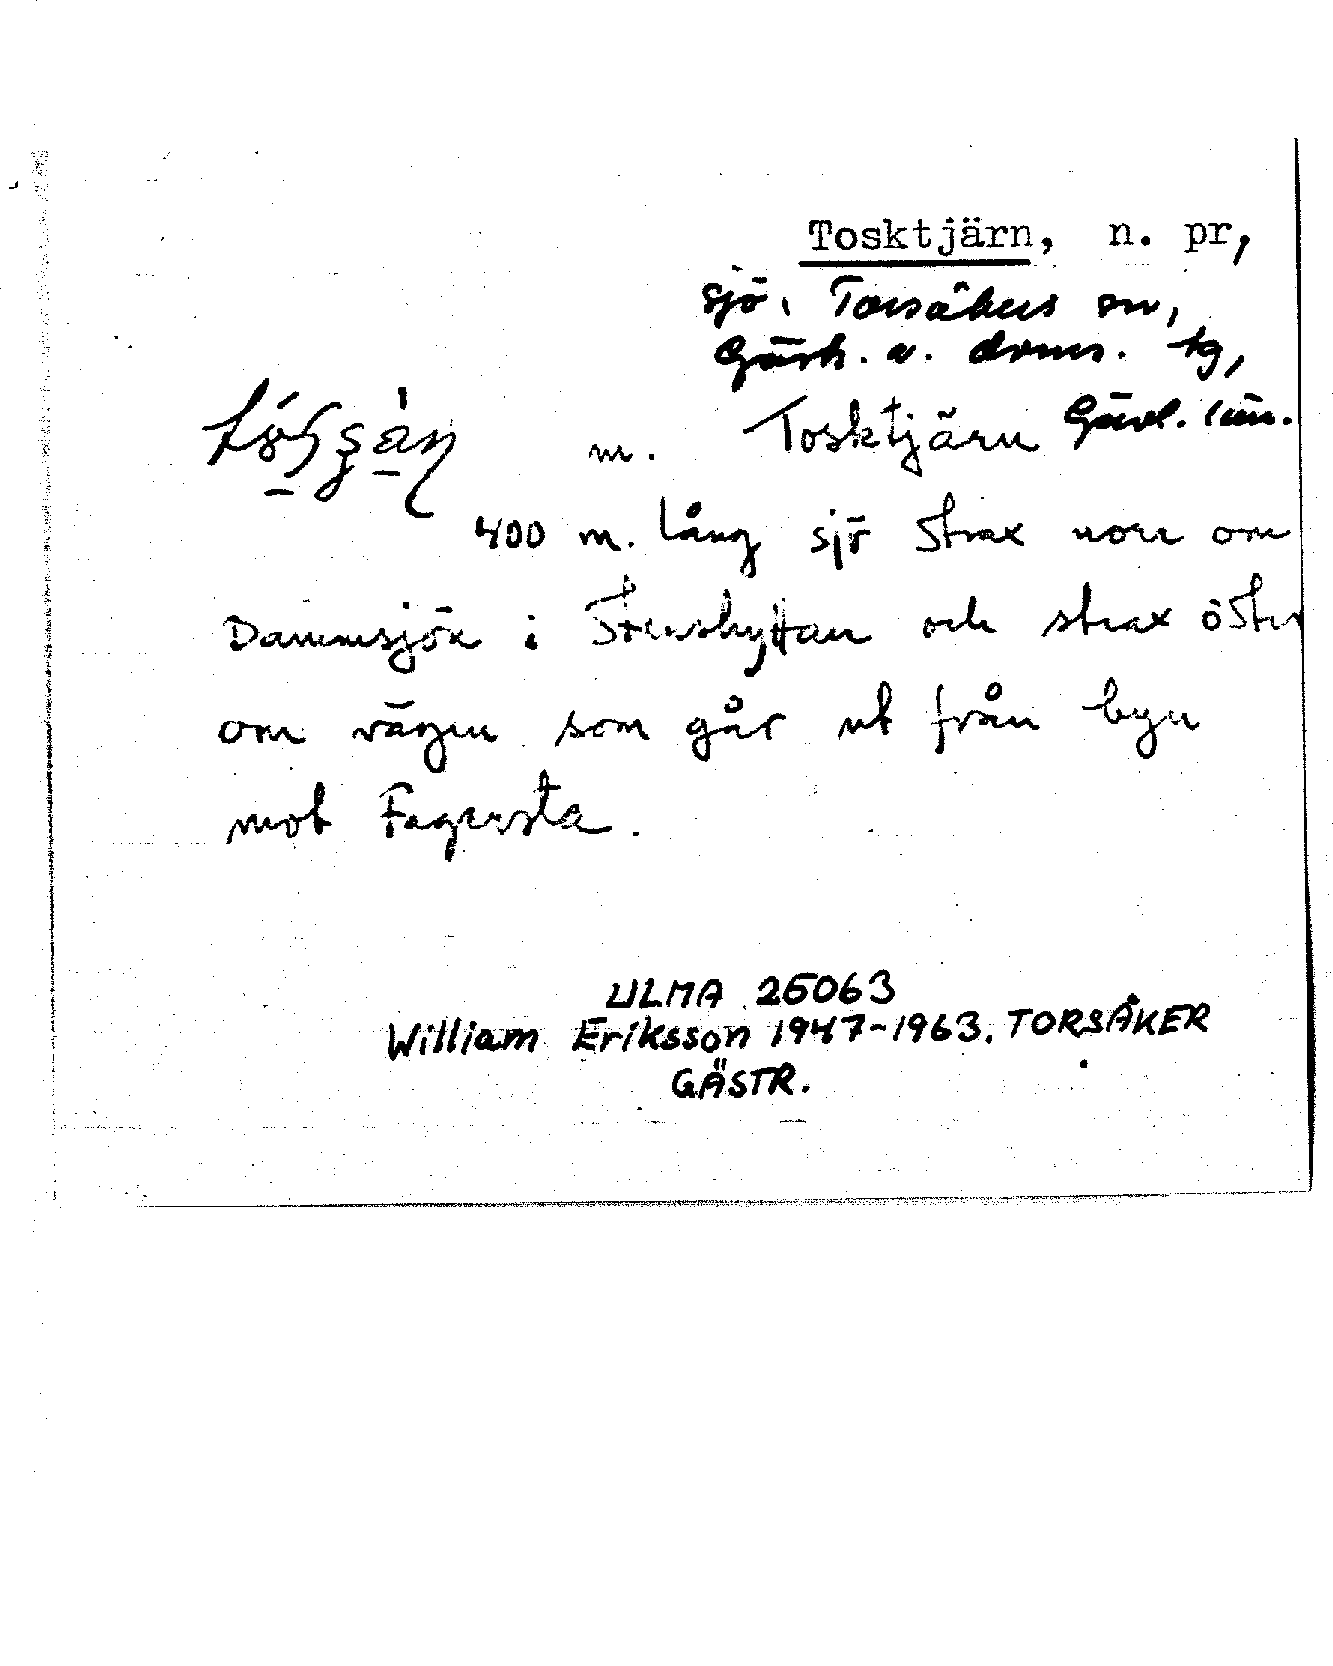 Tosktjärn, n. pr,
sjö i Torsåkers sn,
Gästr. v. doms. tg,
m. Tosktjärn Gävl. län.
400 m. lång sjö strax norr om
Dammsjön i Stenshyttan och strax öster
om vägen som går ut från byn
mot Fagersta.
ULMA 25063
William Eriksson 1947-1963. TORSÅKER
GÄSTR.